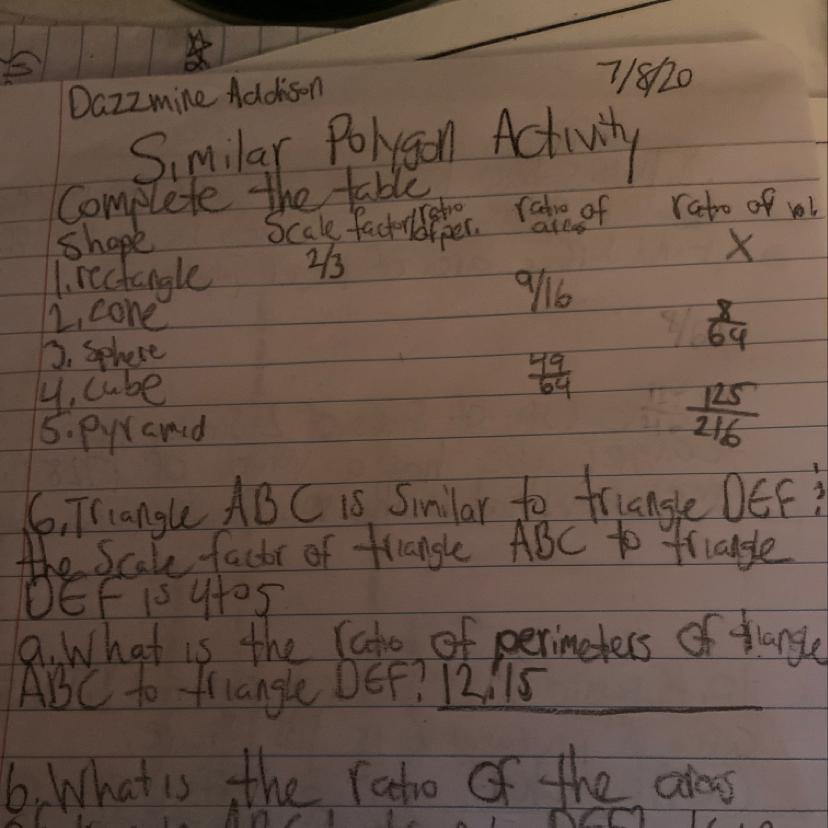 Dazzmine Addison
7/8/20
Similar Polygon Activity
Complete the table
Shape Scale factor/ratio of per. ratio of areas ratio of vol.
1. rectangle 2/3 X
2. cone 9/16
3. Sphere 8/64
4. Cube 49/64
5. Pyramid 125/216
6. Triangle ABC is Similar to triangle DEF;
the Scale factor of triangle ABC to triangle
DEF is 4 to 5
a. What is the ratio of perimeters of triangle
ABC to triangle DEF? 12:15
b. What is the ratio of the areas